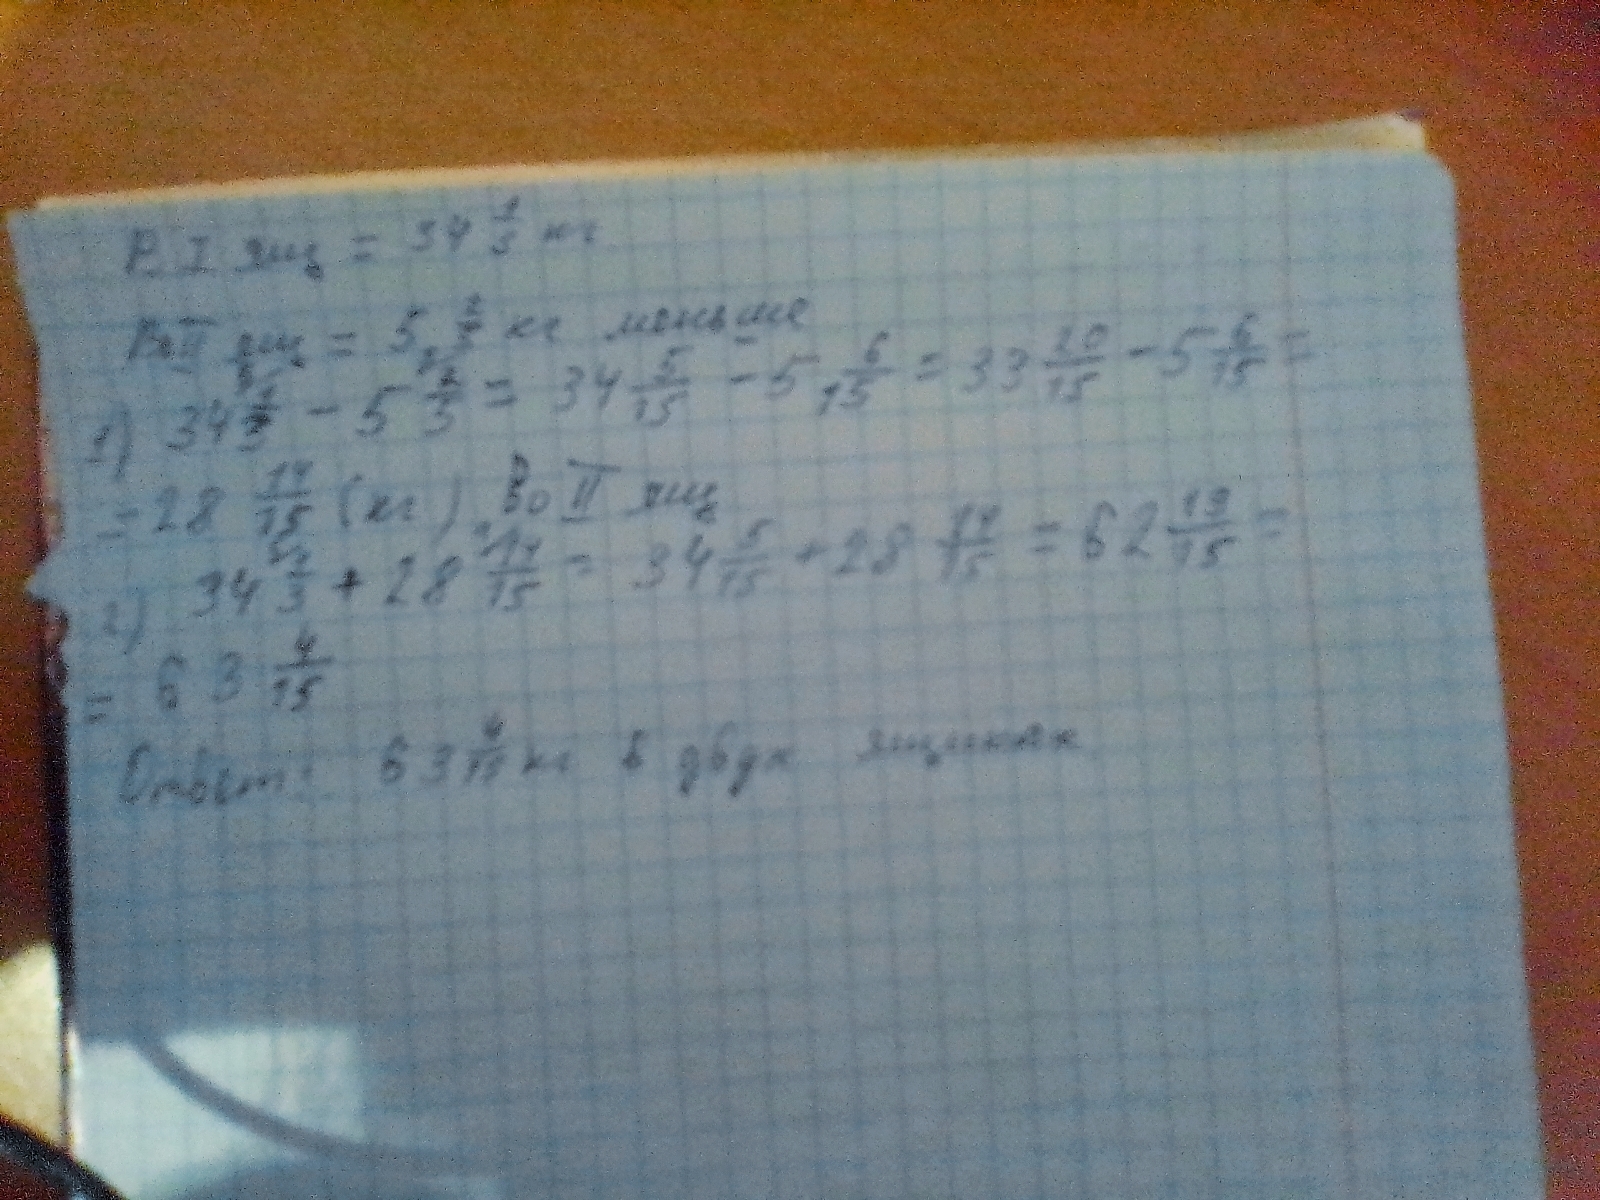 В I ящ = 34 1/3 кг
Во II ящ = 5 2/5 кг меньше
1) 34 1/3 - 5 2/5 = 34 5/15 - 5 6/15 = 33 20/15 - 5 6/15 =
= 28 14/15 (кг) Во II ящ
2) 34 1/3 + 28 14/15 = 34 5/15 + 28 14/15 = 62 19/15 =
= 63 4/15
Ответ: 63 4/15 кг в двух ящиках